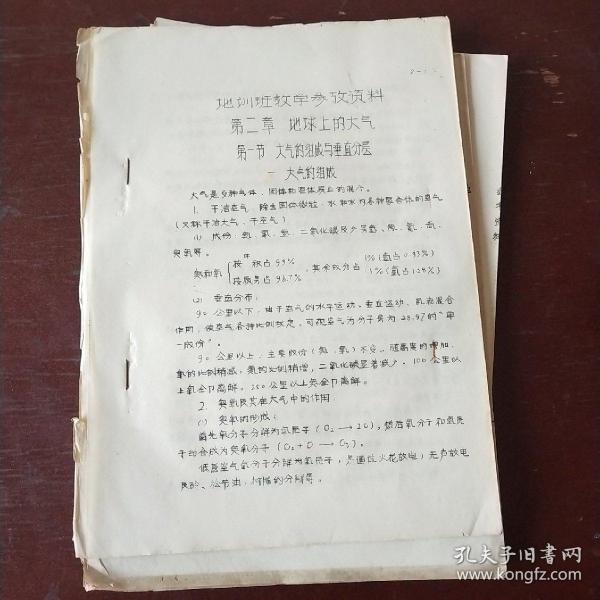 地训班教学参攷资料
第二章 地球上的大气
第一节 大气的组成与垂直分层
一 大气的组成
大气是多种气体、固体和液体质点的混合。
1. 干洁空气:除去固体微粒、水和水的各种聚合体的空气
(又称干洁大气、干空气)
(1) 成份:氮、氧、氩、二氧化碳及少量
臭氧等。
氮和氧 按体积占99% 其余成分占 1%(氩占0.93%)
按质量占98.7%
(2) 垂直分布:
90公里以下,由于空气的水平运动、垂直运动、乱流混合
作用,使空气各种比例故定,可视空气为分子量为28.97的“单
一成份”。
90公里以上,主要成份(氮、氧)不变,随高度的增加,
氧的比例稍减,氮的比例稍增,二氧化碳显著减少。100公里以
上氧全部离解。250公里以上氮全部离解。
2. 臭氧及其在大气中的作用
(1) 臭氧的形成:
首先氧分子分解为氧原子(O₂ → 2O),然后氧分子和氧原
子结合成为臭氧分子(O₂ + O → O₃)。
低层空气氧分子分解为氧原子,是通过火花放电,无声放电
的分解等。
孔夫子旧书网
www.kongfz.com